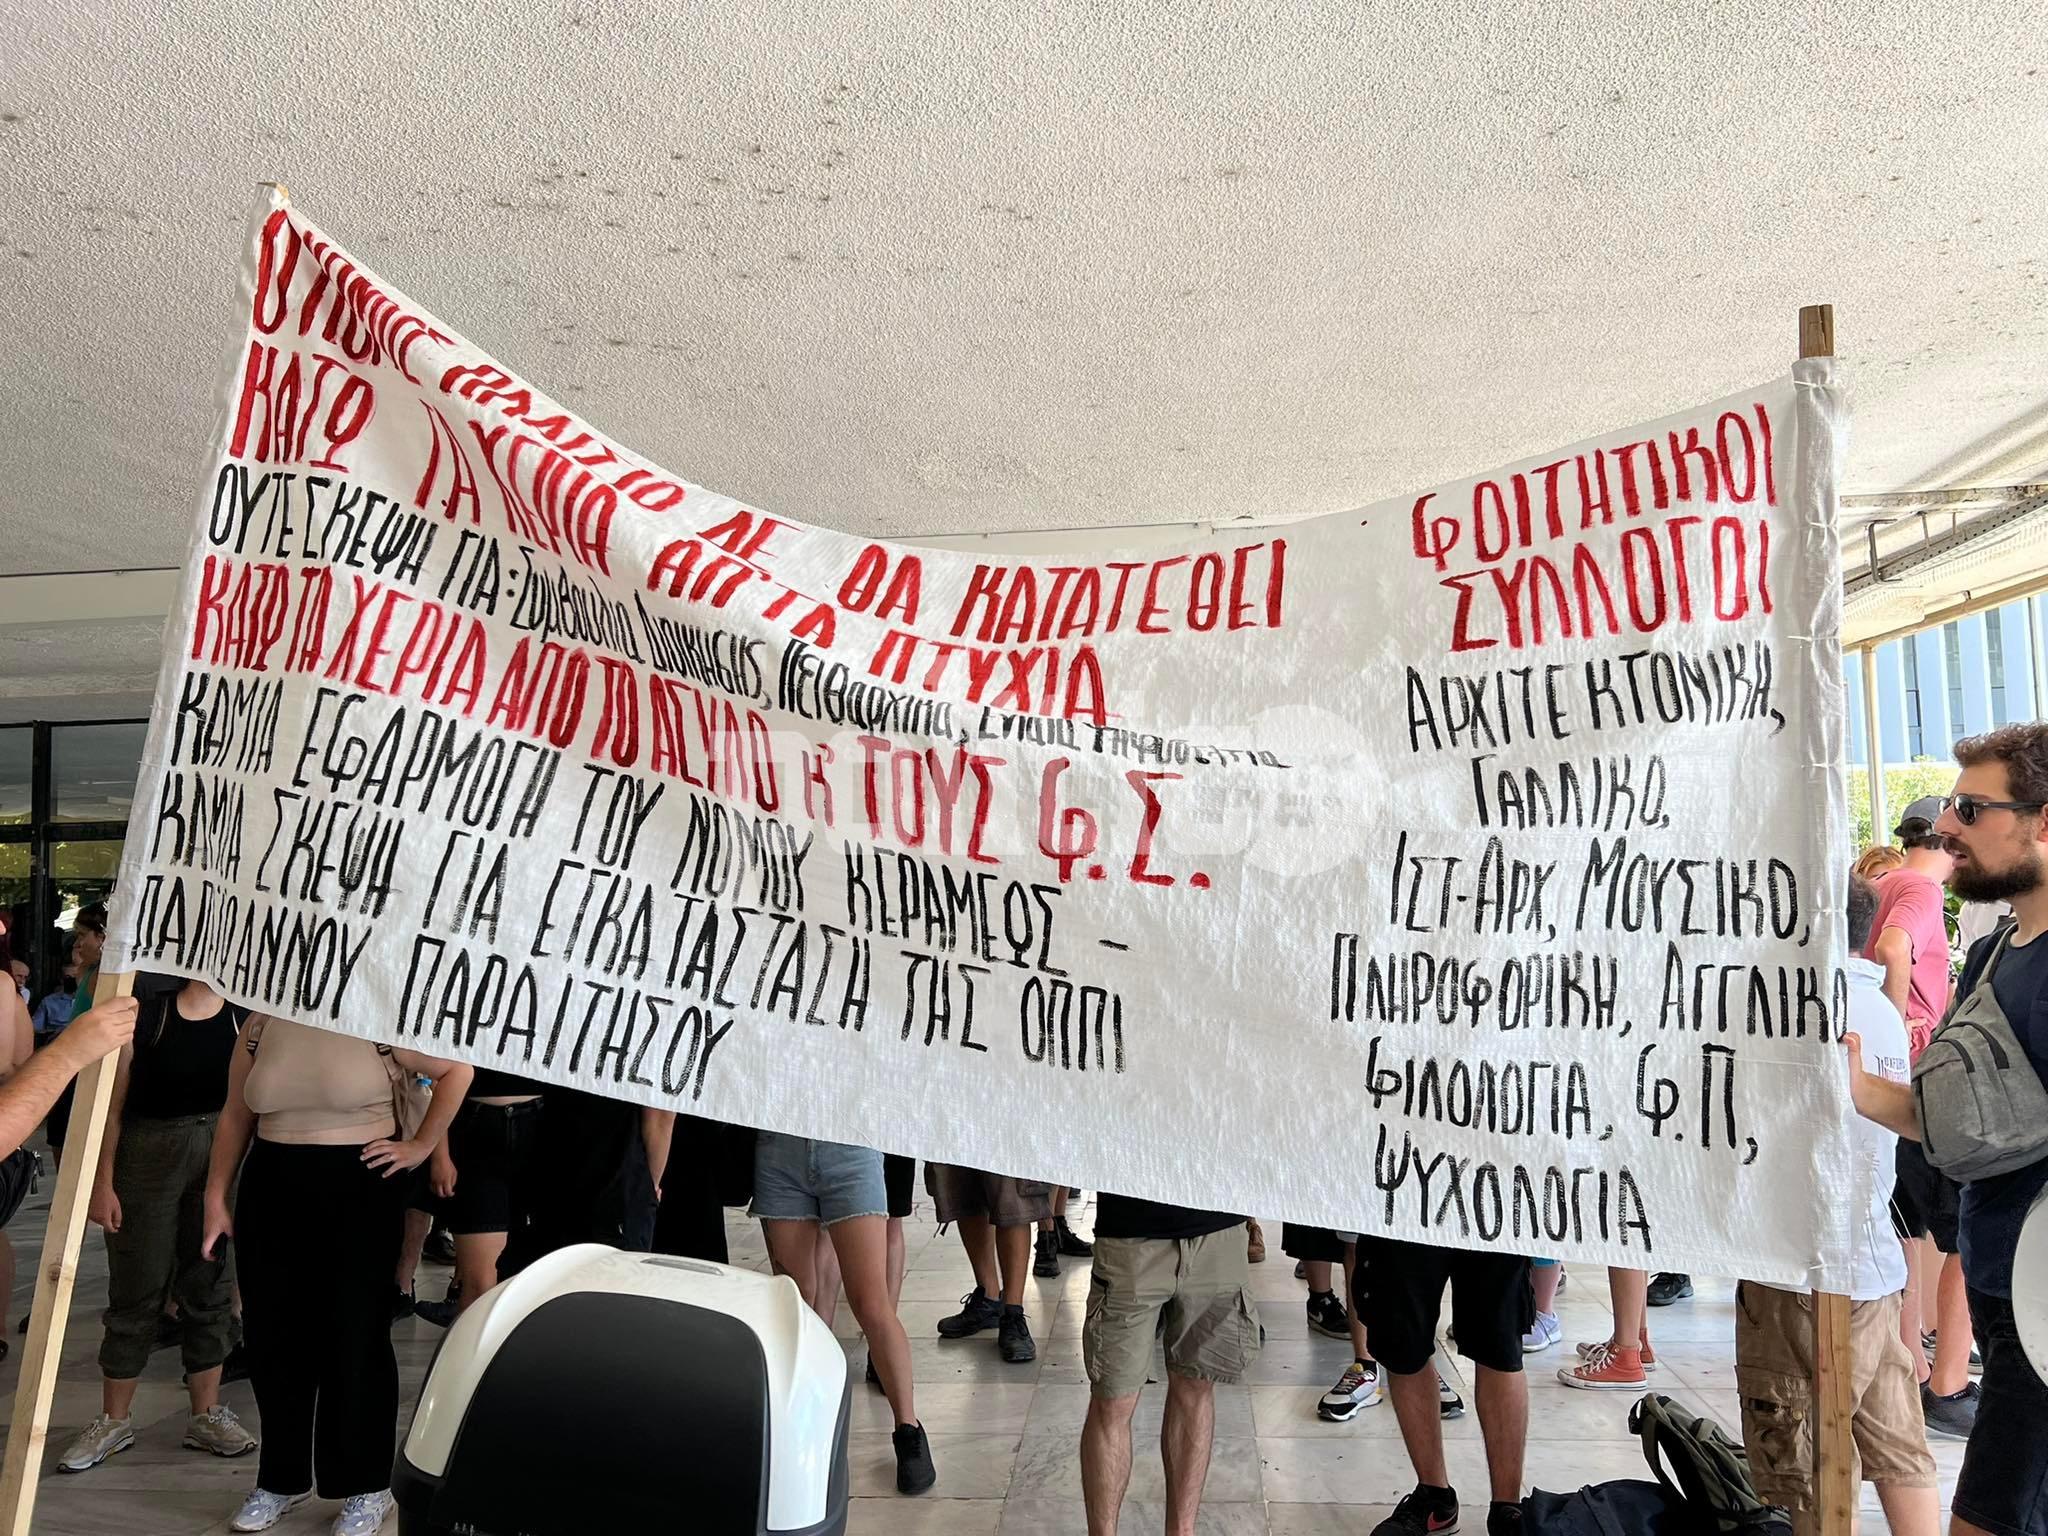 Ο ΝΟΜΟΣ ΠΛΑΙΣΙΟ ΔΕ ΘΑ ΚΑΤΑΤΕΘΕΙ
ΚΑΤΩ ΤΑ ΧΕΡΙΑ ΑΠ' ΤΑ ΠΤΥΧΙΑ
ΟΥΤΕ ΣΚΕΨΗ ΓΙΑ: Συμβούλια Διοίκησης, Πειθαρχικά, Ενιαία Ψηφοδέλτια
ΚΑΤΩ ΤΑ ΧΕΡΙΑ ΑΠΟ ΤΟ ΑΣΥΛΟ Κ' ΤΟΥΣ Φ.Σ.
ΚΑΜΙΑ ΕΦΑΡΜΟΓΗ ΤΟΥ ΝΟΜΟΥ ΚΕΡΑΜΕΩΣ –
ΚΑΜΙΑ ΣΚΕΨΗ ΓΙΑ ΕΓΚΑΤΑΣΤΑΣΗ ΤΗΣ ΟΠΠΙ
ΠΑΠΑΪΩΑΝΝΟΥ ΠΑΡΑΙΤΗΣΟΥ
ΦΟΙΤΗΤΙΚΟΙ
ΣΥΛΛΟΓΟΙ
ΑΡΧΙΤΕΚΤΟΝΙΚΗ,
ΓΑΛΛΙΚΟ,
ΙΣΤ-ΑΡΧ, ΜΟΥΣΙΚΟ,
ΠΛΗΡΟΦΟΡΙΚΗ, ΑΓΓΛΙΚΟ
ΦΙΛΟΛΟΓΙΑ, Φ.Π,
ΨΥΧΟΛΟΓΙΑ